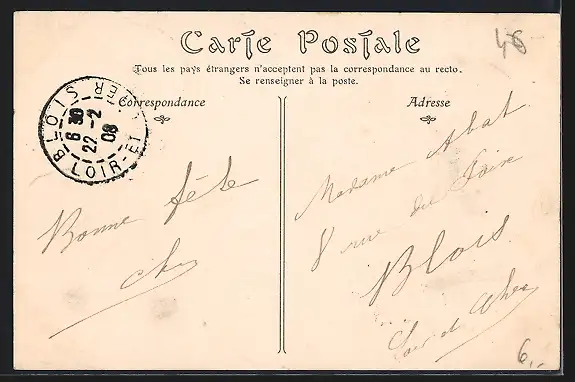 Carte Postale
46
Tous les pays étrangers n'acceptent pas la correspondance au recto.
Se renseigner à la poste.
Correspondance
Adresse
BLOIS
6 30
22-2
08
LOIR-ET-CHER
Bonne fête
Madame Abat
8 rue du Foix
Blois
Loir et Cher
6,-